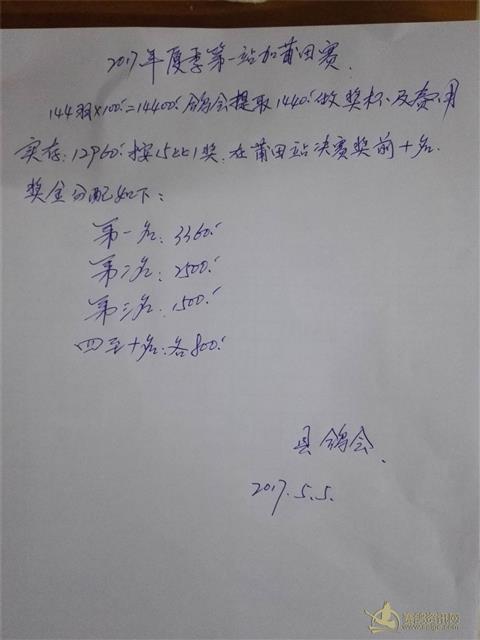 2017年夏季第一站加莆田赛.
144羽×100.=14400.鸽会提取1440.做奖杯及费用
实存:12960.按15比1奖.在莆田站决赛奖前十名.
奖金分配如下:
第一名:3360.
第二名:2500.
第三名:1500.
四至十名:各800.
县鸽会.
2017.5.5.
赛鸽资讯网